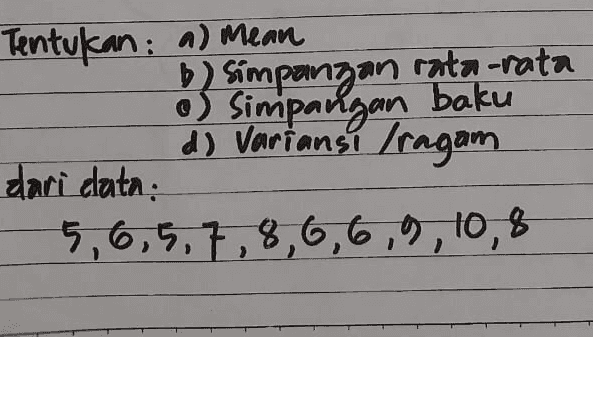 Tentukan : a) Mean
b) Simpangan rata-rata
c) Simpangan baku
d) Variansi / ragam
dari data :
5, 6, 5, 7, 8, 6, 6, 9, 10, 8